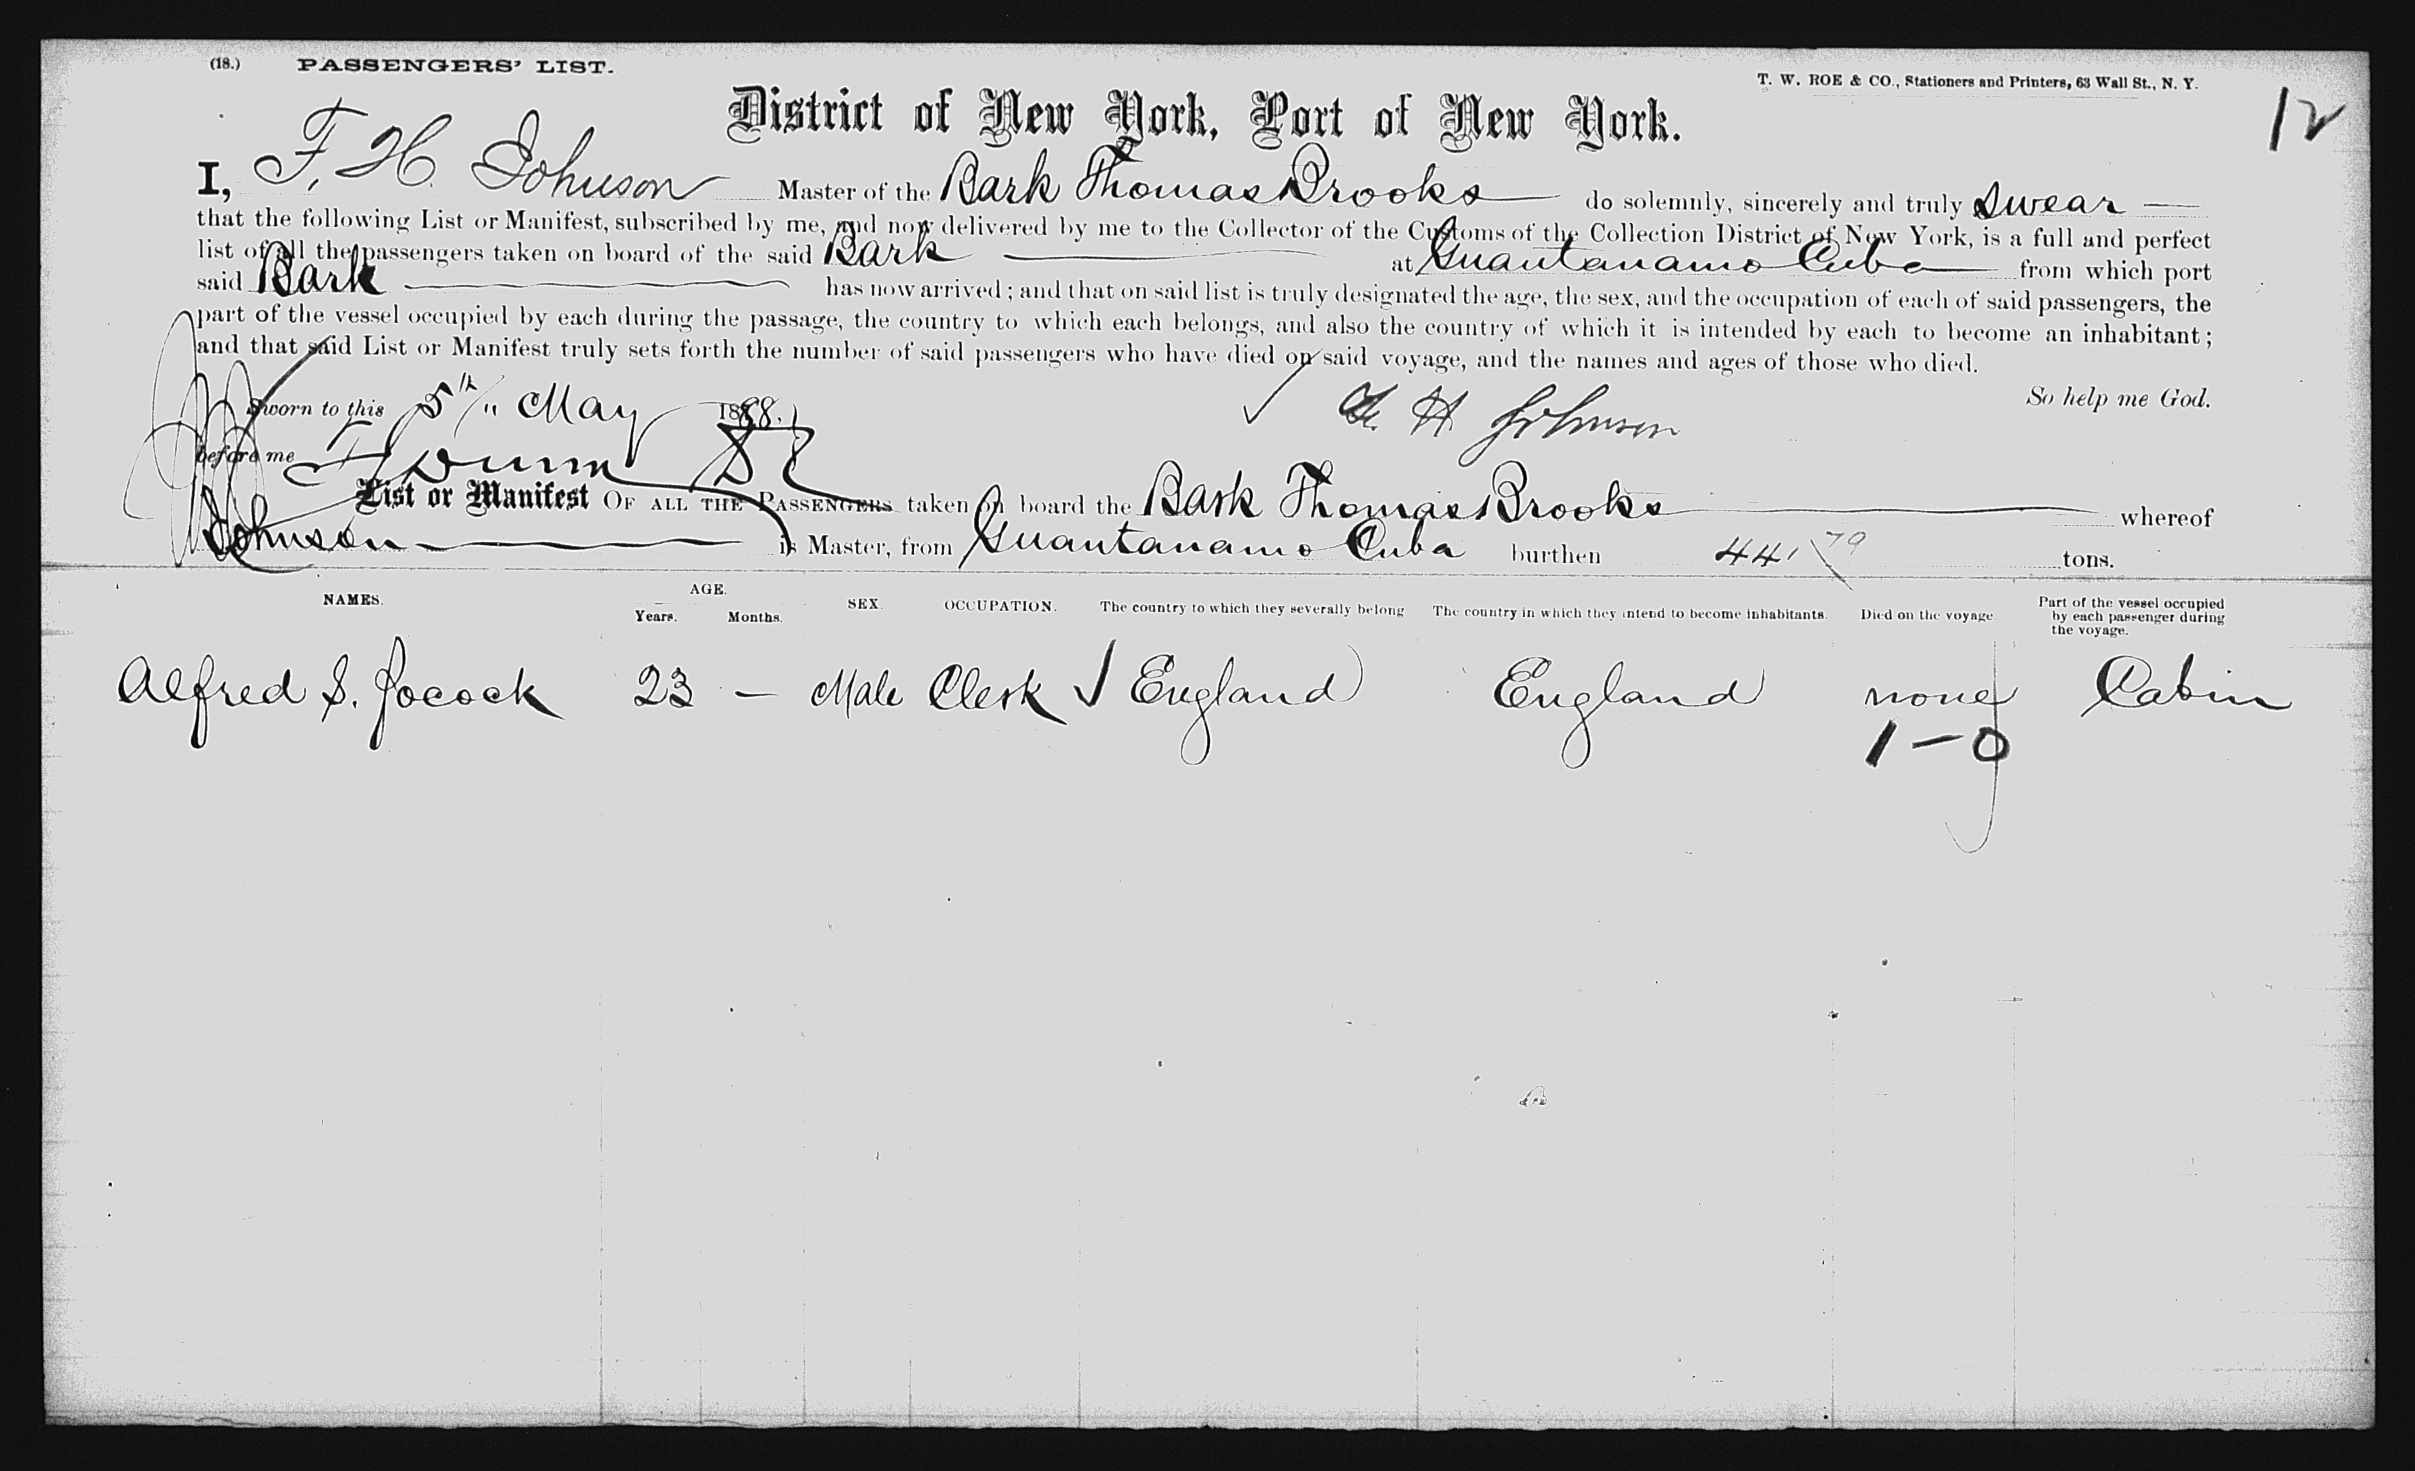 (18.) PASSENGERS' LIST.
T. W. ROE & CO., Stationers and Printers, 63 Wall St., N. Y.
12
District of New York, Port of New York.
I, F. H. Johnson Master of the Bark Thomas Brooks do solemnly, sincerely and truly swear
that the following List or Manifest, subscribed by me, and now delivered by me to the Collector of the Customs of the Collection District of New York, is a full and perfect
list of all the passengers taken on board of the said Bark at Guantanamo Cuba from which port
said Bark has now arrived; and that on said list is truly designated the age, the sex, and the occupation of each of said passengers, the
part of the vessel occupied by each during the passage, the country to which each belongs, and also the country of which it is intended by each to become an inhabitant;
and that said List or Manifest truly sets forth the number of said passengers who have died on said voyage, and the names and ages of those who died.
So help me God.
Sworn to this 5th May 1888.
F. H. Johnson
before me Dunn
List or Manifest OF ALL THE PASSENGERS taken on board the Bark Thomas Brooks whereof
Johnson is Master, from Guantanamo Cuba burthen 441 79 tons.
NAMES. AGE. Years. Months. SEX. OCCUPATION. The country to which they severally belong The country in which they intend to become inhabitants. Died on the voyage Part of the vessel occupied by each passenger during the voyage.
Alfred S. Jocock 23 — Male Clerk ✓ England England none Cabin
1 – 0